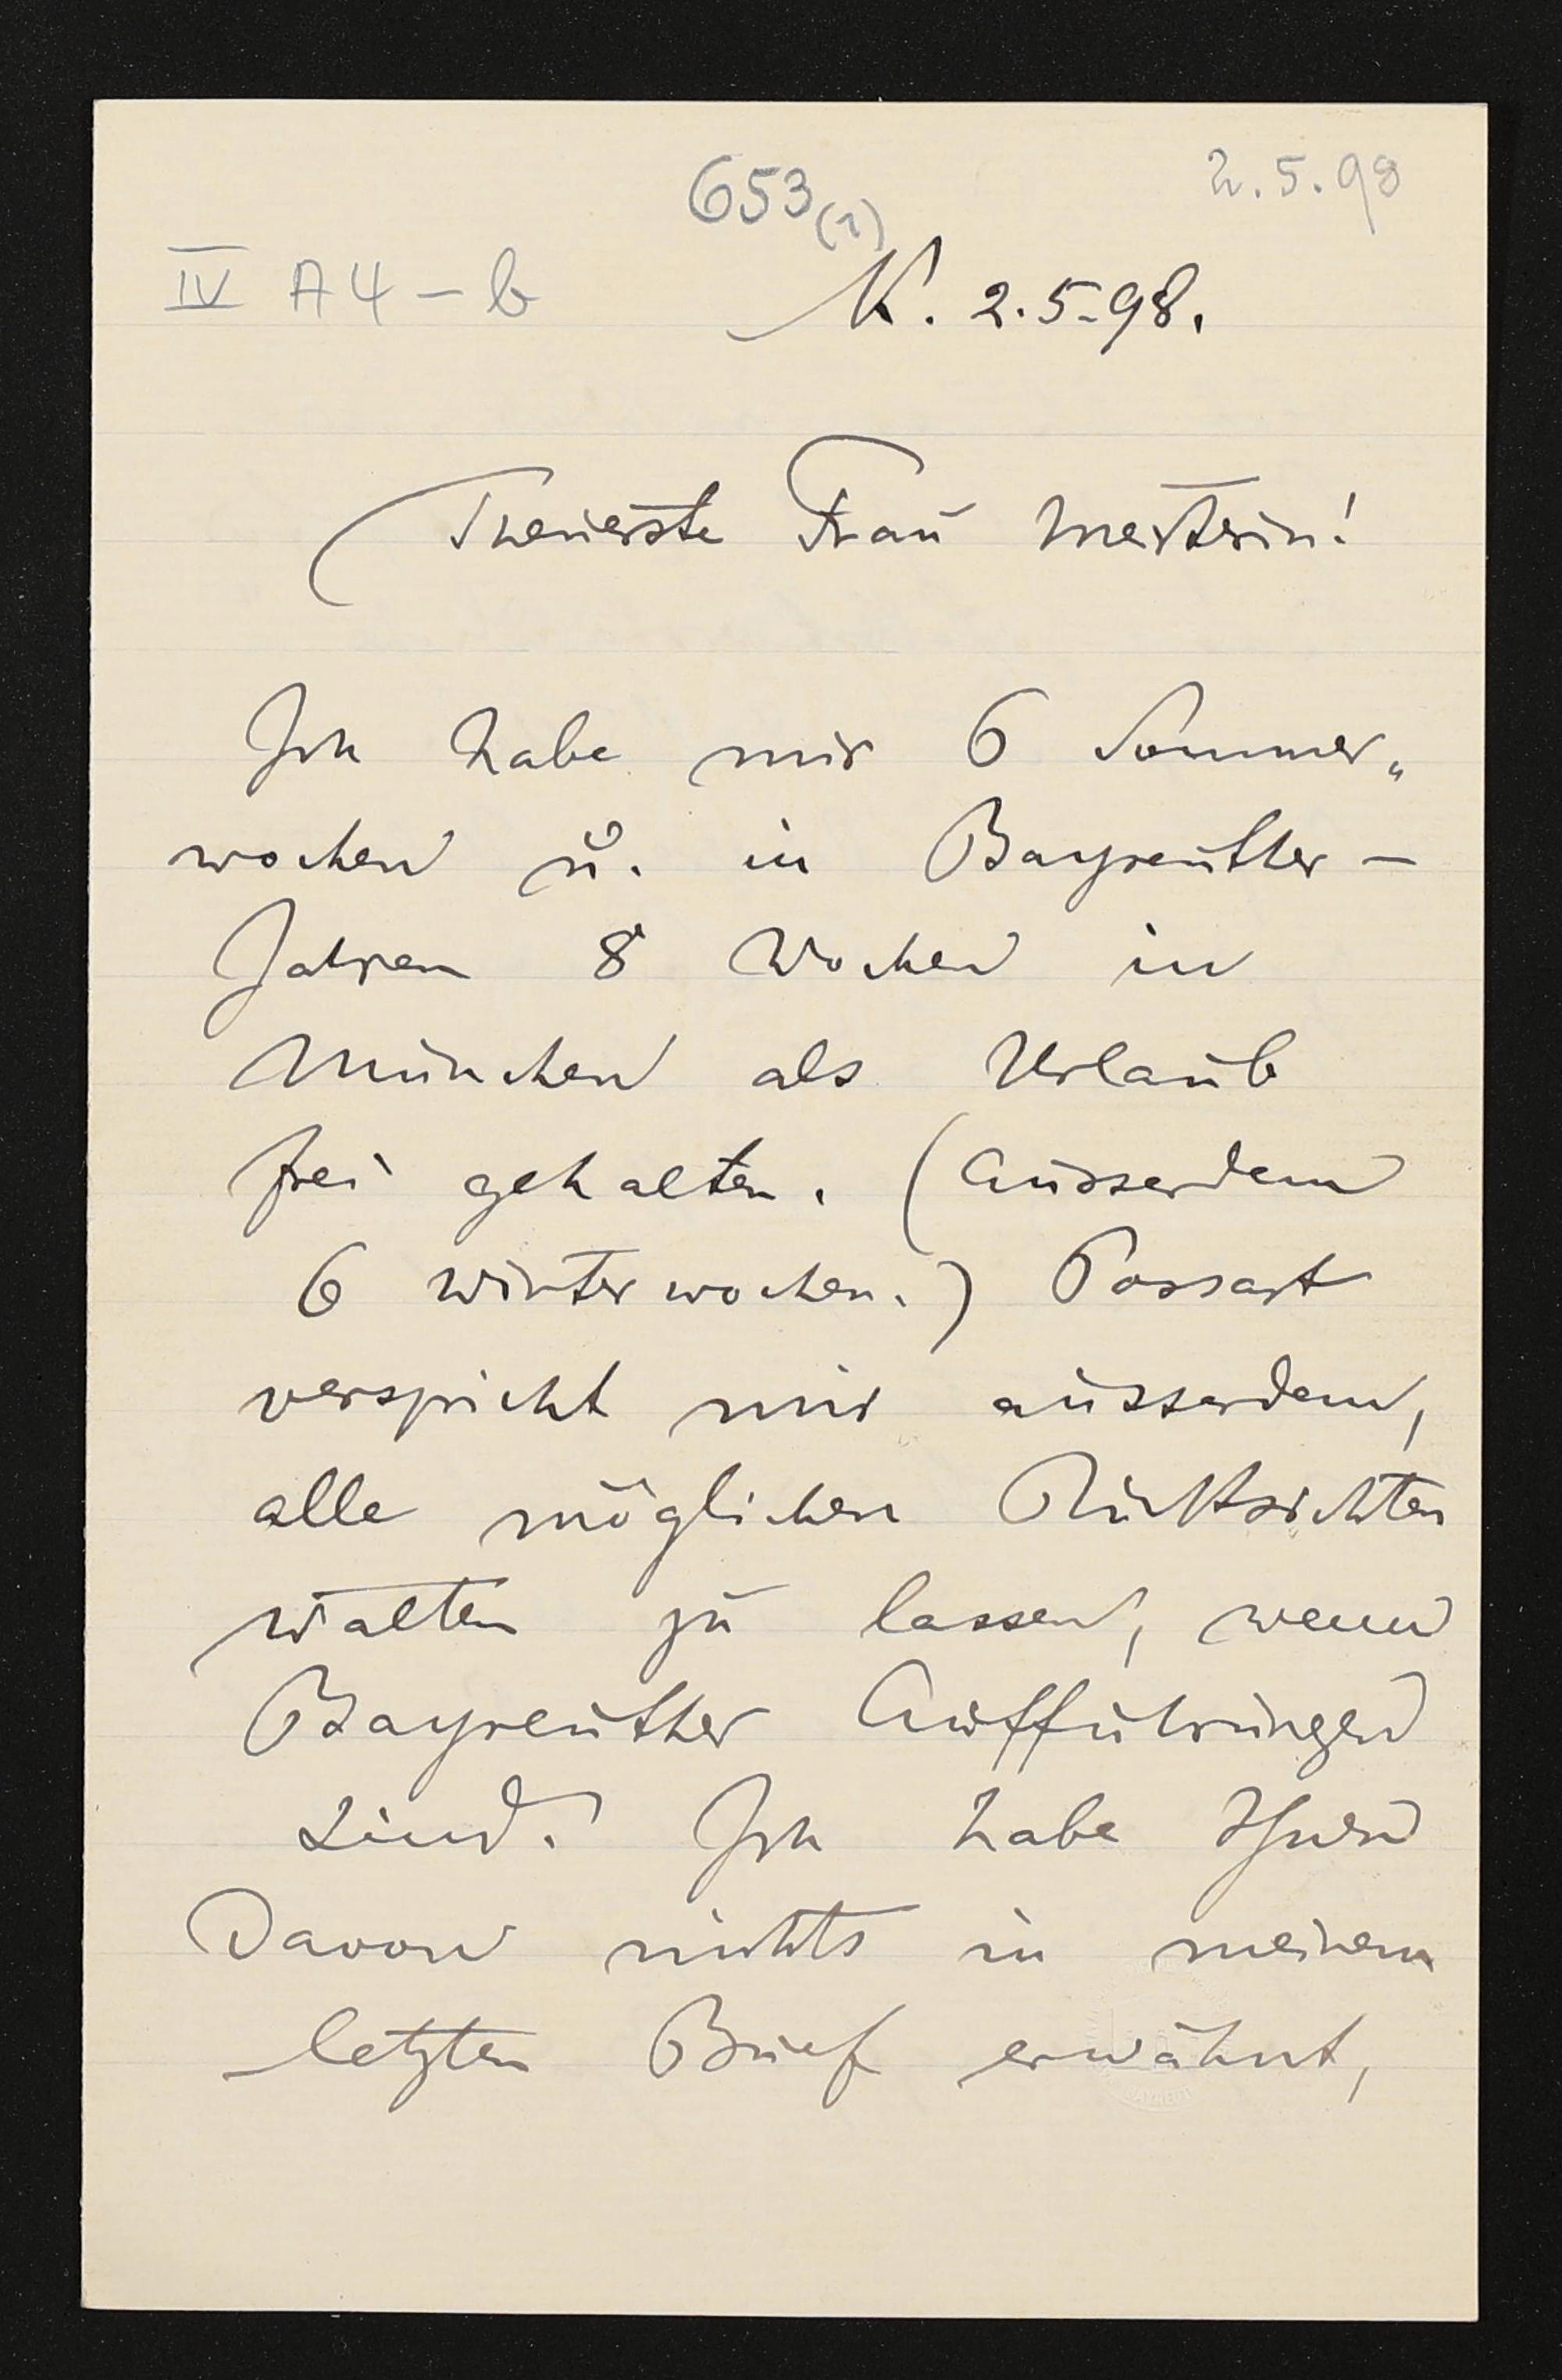 653 (1)
2.5.98
IV A4-b
K. 2.5.98.
Theuerste Frau Meisterin!
Ich habe mir 6 Sommer„
wochen u. in Bayreuther-
Jahren 8 Wochen in
München als Urlaub
frei gehalten. (Ausserdem
6 Winterwochen.) Possart
verspricht mir ausserdem,
alle möglichen Rücksichten
walten zu lassen, wenn
Bayreuther Aufführungen
sind. Ich habe Ihnen
davon nichts in meinem
letzten Brief erwähnt,